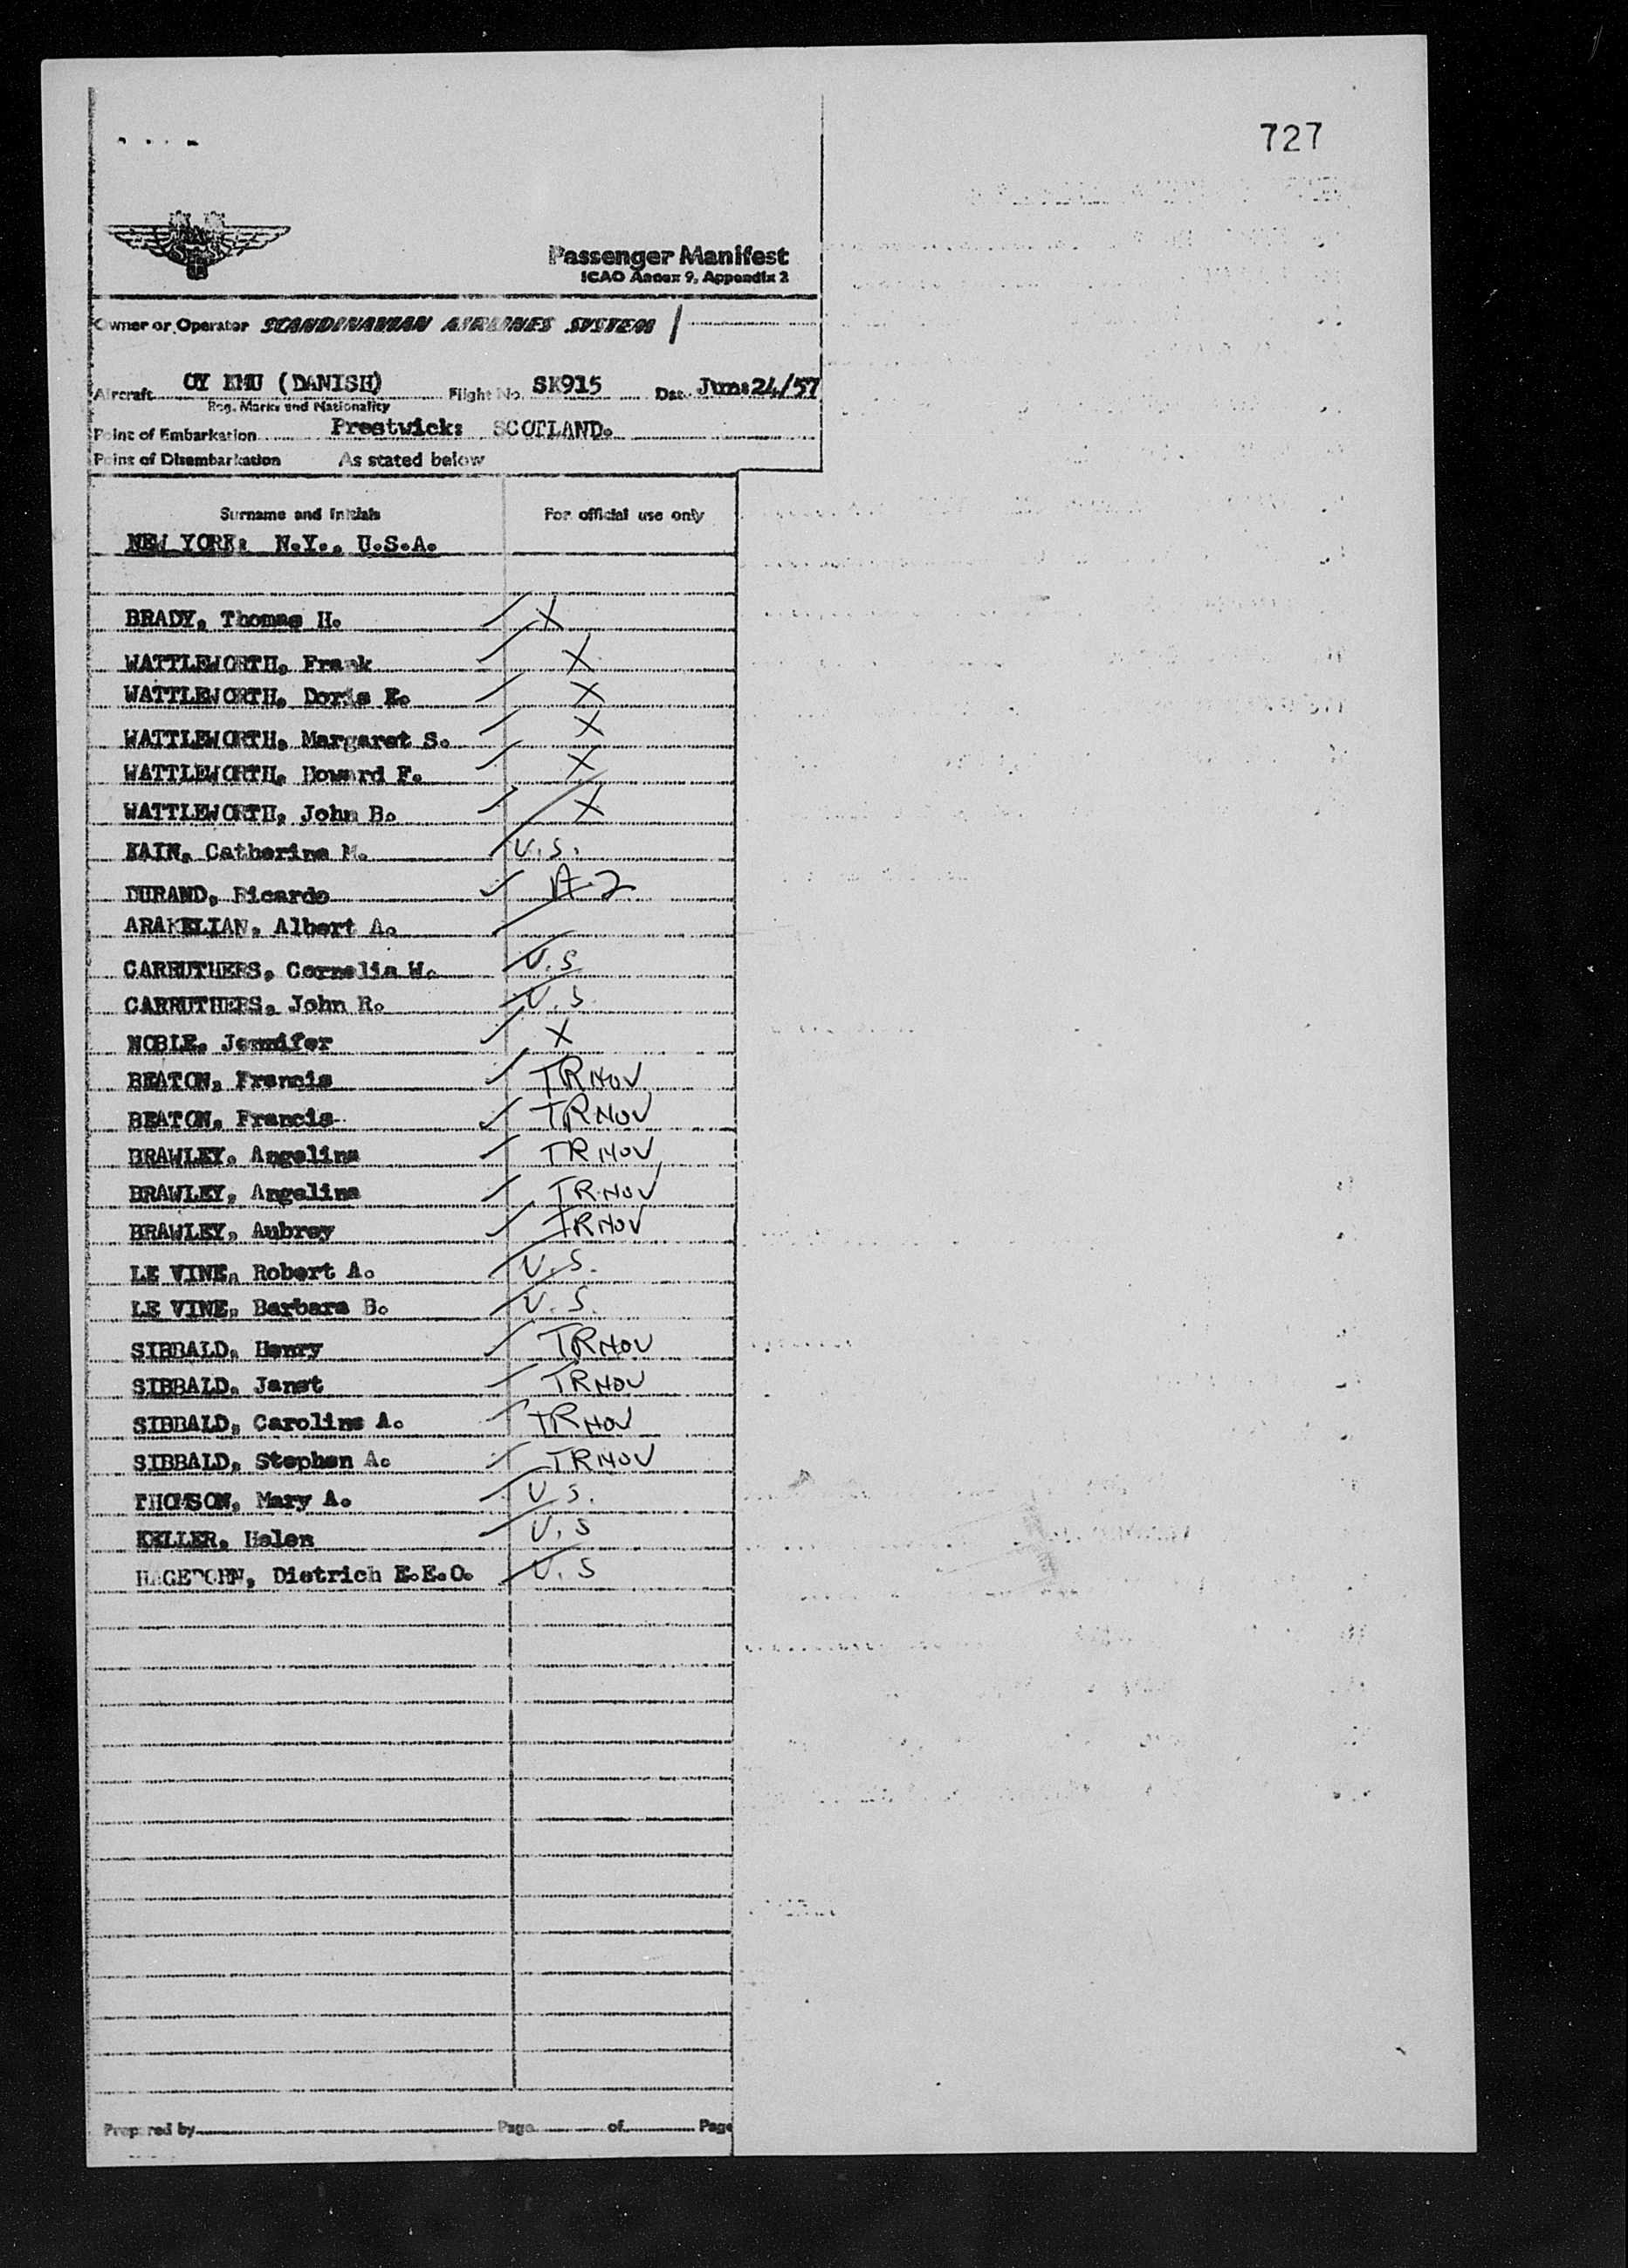 727
Passenger Manifest
ICAO Annex 9, Appendix 2
Owner or Operator SCANDINAVIAN AIRLINES SYSTEM
Aircraft OY KMU (DANISH) Flight No. SK915 Date June 24/57
Reg. Marks and Nationality
Point of Embarkation Prestwick: SCOTLAND.
Point of Disembarkation As stated below
Surname and Initials For official use only
NEW YORK: N.Y., U.S.A.
BRADY, Thomas H. X
WATTLEWORTH, Frank X
WATTLEWORTH, Doris E. X
WATTLEWORTH, Margaret S. X
WATTLEWORTH, Howard F. X
WATTLEWORTH, John B. X
KAIN, Catherine M. U.S.
DURAND, Ricardo A-2
ARAKELIAN, Albert A.
CARRUTHERS, Cornelia W. U.S
CARRUTHERS, John R. U.S.
NOBLE, Jennifer X
BEATON, Francis TRNOV
BEATON, Francis TRNOV
BRAWLEY, Angelina TRNOV
BRAWLEY, Angelina TRNOV
BRAWLEY, Aubrey TRNOV
LE VINE, Robert A. U.S.
LE VINE, Barbara B. U.S.
SIBBALD, Henry TRNOV
SIBBALD, Janet TRNOV
SIBBALD, Caroline A. TRNOV
SIBBALD, Stephen A. TRNOV
THOMSON, Mary A. U.S.
KELLER, Helen U.S
HAGEDORN, Dietrich E.E.O. U.S
Prepared by Page of Page